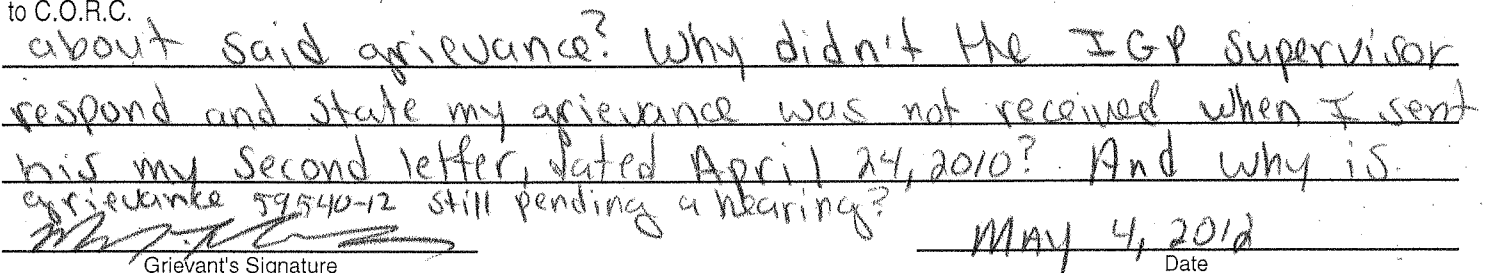 to C.O.R.C.
about said grievance? Why didn't the IGP supervisor
respond and state my grievance was not received when I sent
his my second letter, dated April 24, 2010? And why is
grievance 59540-12 still pending a hearing?
MAY 4, 2012
Grievant's Signature
Date